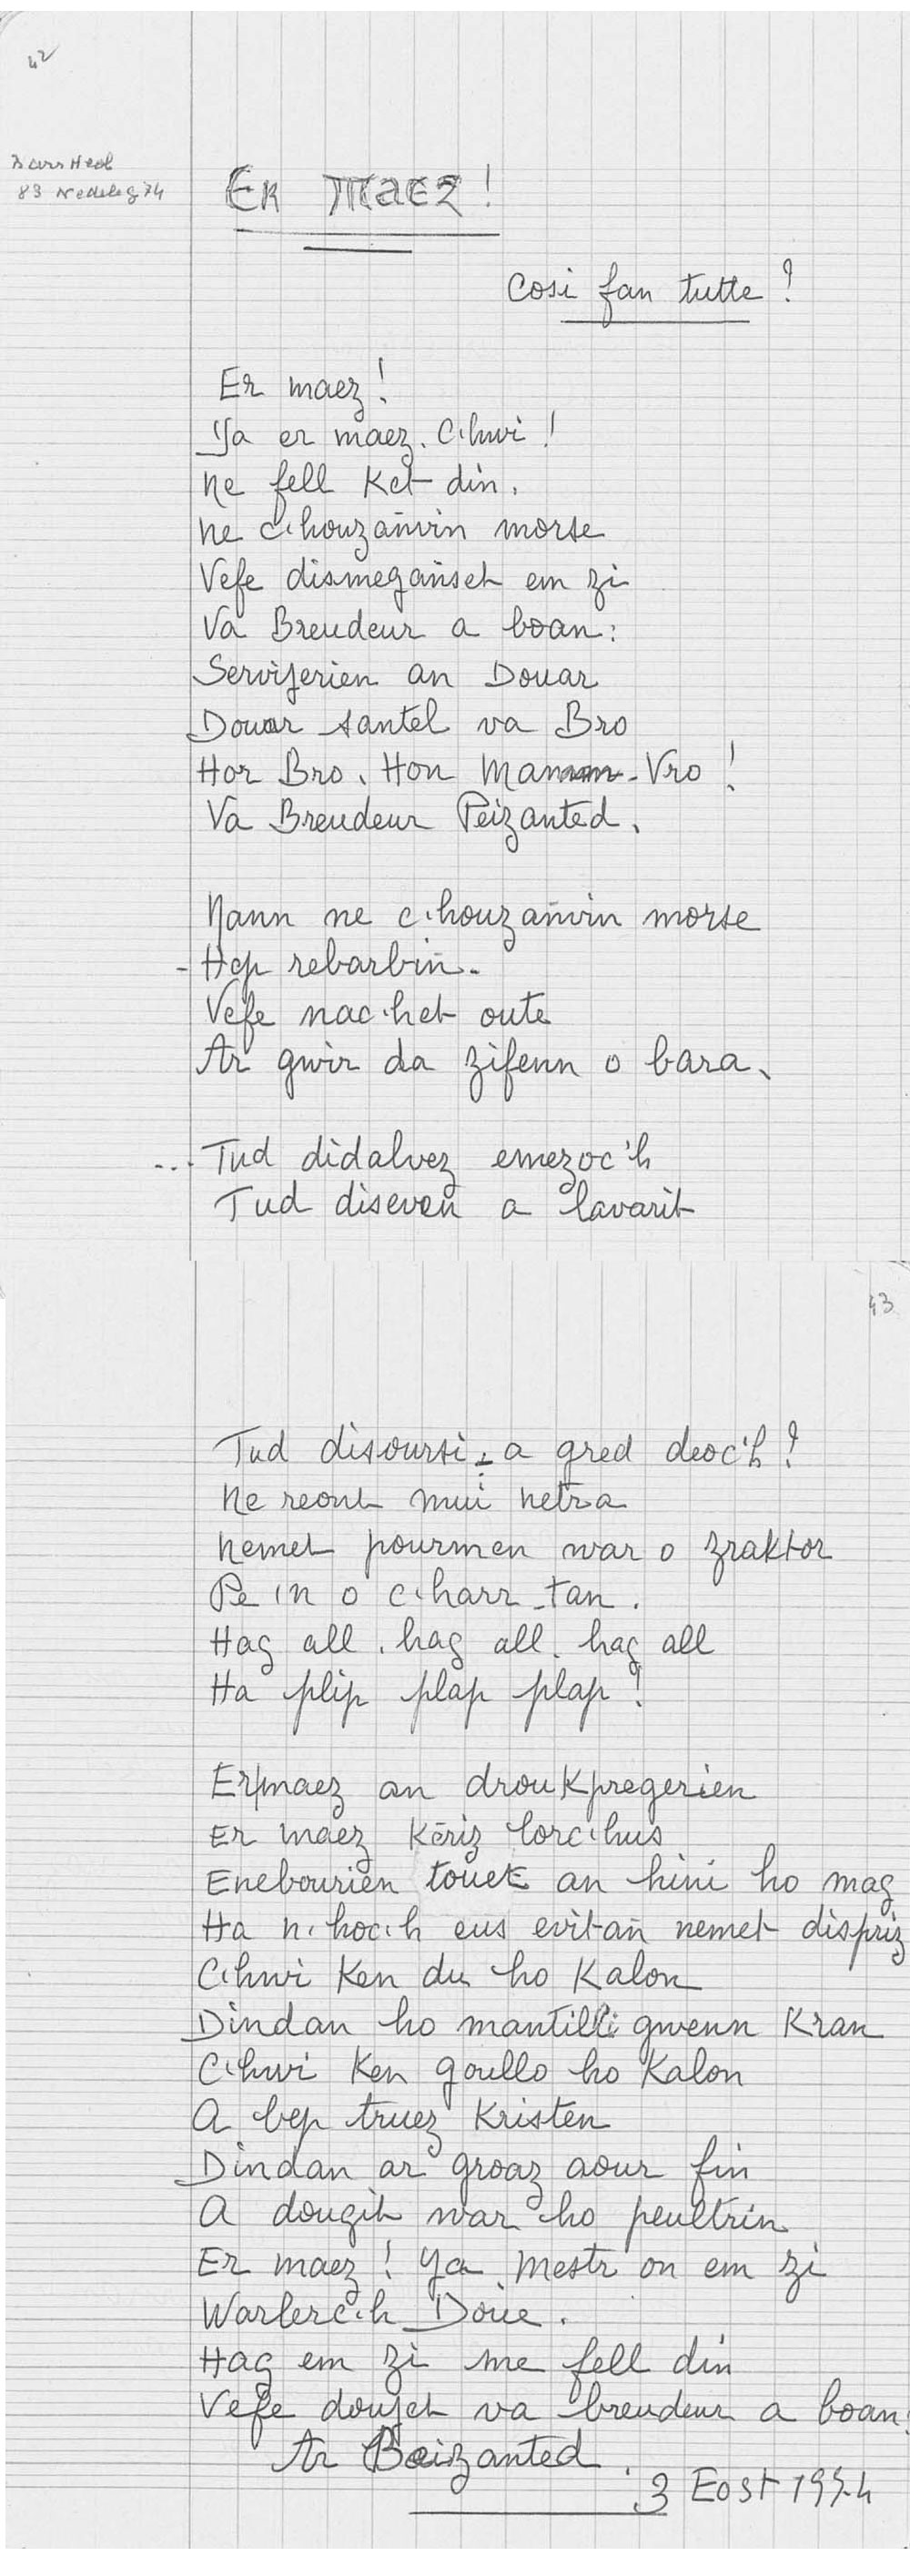 42
Barr Heol
83 Nedeleg 74
ER MAEZ!
Cosi fan tutte?
Er maez!
Ya er maez. C'hwi!
Ne fell Ket din,
Ne c'houzañvin morse
Vefe dismegañset em zi
Va Breudeur a boan:
Servijerien an Douar
Douar santel va Bro
Hor Bro, Hon Mamm-Vro!
Va Breudeur Peizanted,
Nann ne c'houzañvin morse
- Hep rebarbiñ -
Vefe nac'het oute
Ar gwir da zifenn o bara,
... Tud didalvez emezoc'h
Tud diseven a lavarit
43
Tud disoursi; a gred deoc'h?
Ne reont mui netra
Nemet pourmen war o zraktor
Pe in o c'harr-tan.
Hag all, hag all, hag all
Ha plip plap plap!
Er maez an droukpregerien
Er maez Keriz lorc'hus
Enebourien touet an hini ho mag
Ha n'hoc'h eus evitañ nemet dispriz
C'hwi Ken du ho Kalon
Dindan ho mantilli gwenn Kran
C'hwi Ken goullo ho Kalon
A bep truez Kristen
Dindan ar groaz aour fin
A dougit war ho peultrin
Er maez! Ya, Mestr on em zi
Warlerc'h Doue.
Hag em zi me fell din
Vefe doujet va breudeur a boan:
Ar Beizanted.
3 Eost 1974